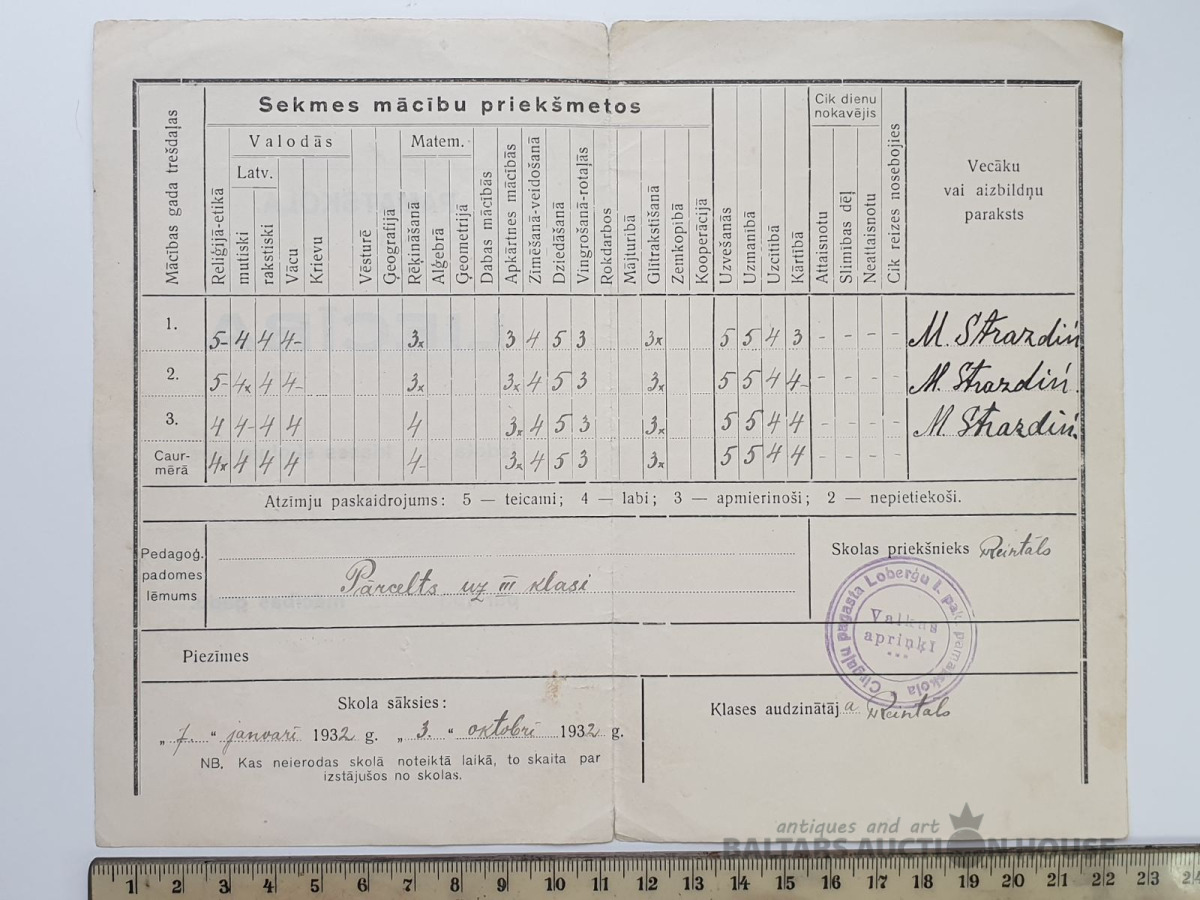 Sekmes mācību priekšmetos
Valodās
Latv.
Matem.
Cik dienu
nokavējis
Vecāku
vai aizbildņu
paraksts
Mācības gada trešdaļas
Reliģijā-etikā
mutiski
rakstiski
Vācu
Krievu
Vēsturē
Ģeografijā
Rēķināšanā
Alģebrā
Ģeometrijā
Dabas mācībās
Apkārtnes mācībās
Zīmēšanā-veidošanā
Dziedāšanā
Vingrošanā-rotaļās
Rokdarbos
Mājturībā
Glītrakstīšanā
Zemkopībā
Kooperācijā
Uzvešanās
Uzmanībā
Uzcītībā
Kārtībā
Attaisnotu
Slimības dēļ
Neattaisnotu
Cik reizes nosebojies
1. 5- 4 4 4- 3x 3 4 5 3 3x 5 5 4 3 - - - - M. Strazdiń
2. 5- 4x 4 4- 3x 3x 4 5 3 3x 5 5 4 4- - - - - M. Strazdiń.
3. 4 4- 4 4 4 3x 4 5 3 3x 5 5 4 4 - - - - M. Strazdiń.
Caur-
mērā 4x 4 4 4 4- 3x 4 5 3 3x 5 5 4 4
Atzīmju paskaidrojums: 5 — teicami; 4 — labi; 3 — apmierinoši; 2 — nepietiekoši.
Pedagoģ.
padomes
lēmums
Pārcelts uz III klasi
Skolas priekšnieks Reintāls
Cirgaļu pagasta Loberģu I. pak. pamatskola
Valkas
apriņķī
***
Piezīmes
Skola sāksies:
„ 7. “ janvarī 1932 g. „ 3. “ oktobrī 1932 g.
NB. Kas neierodas skolā noteiktā laikā, to skaita par
izstājušos no skolas.
Klases audzinātāj a Reintals
antiques and art
BALTARS AUCTION HOUSE
1 2 3 4 5 6 7 8 9 10 11 12 13 14 15 16 17 18 19 20 21 22 23 24